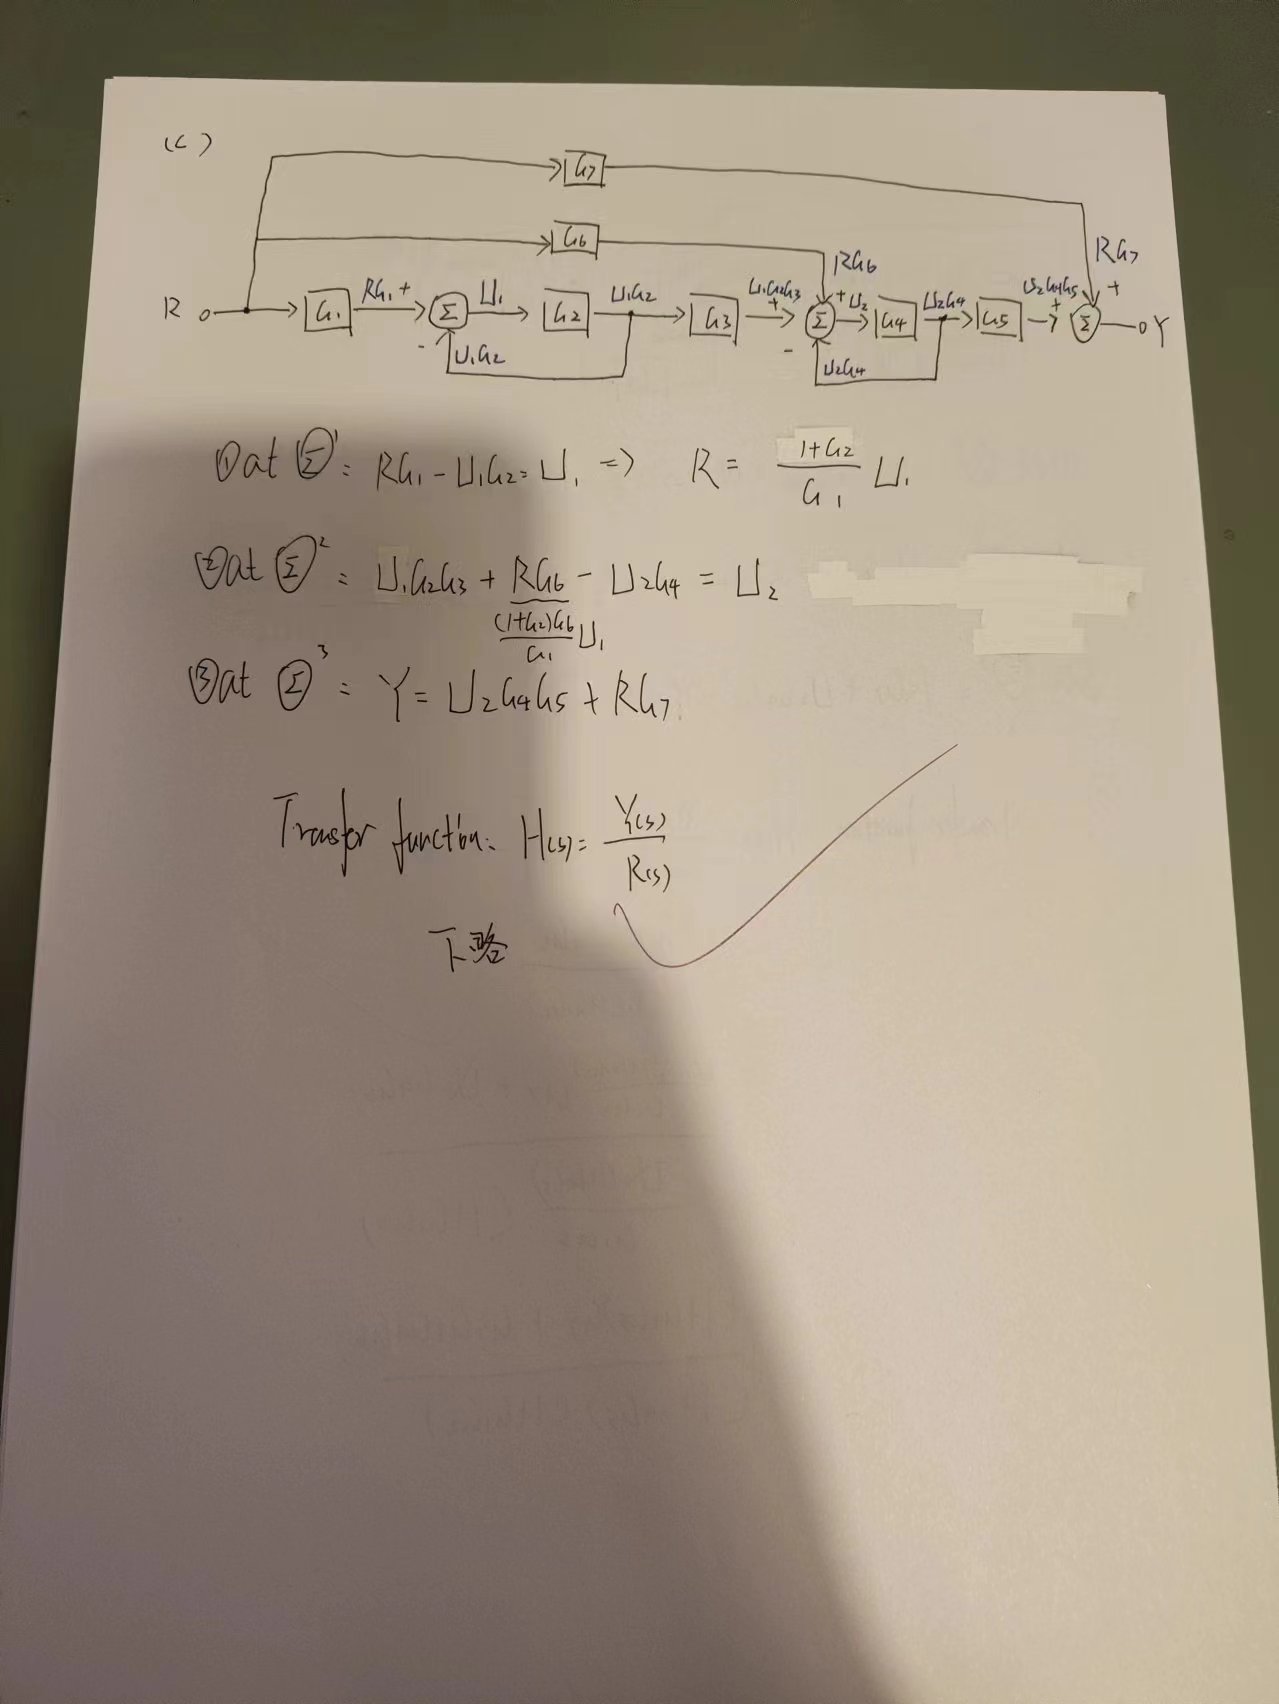 (c)
G7
G6
RG6
RG7
R G1 RG1 + Σ U1 G2 U1G2 G3 U1G2G3 + Σ + U2 G4 U2G4 G5 U2G4G5 + Σ + Y
- U1G2 - U2G4
① at Σ¹: RG1 - U1G2 = U1 => R = (1+G2)/G1 U1
② at Σ² = U1G2G3 + RG6 - U2G4 = U2
(1+G2)G6/G1 U1
③ at Σ³ = Y = U2G4G5 + RG7
Transfer function: H(s) = Y(s)/R(s)
下略